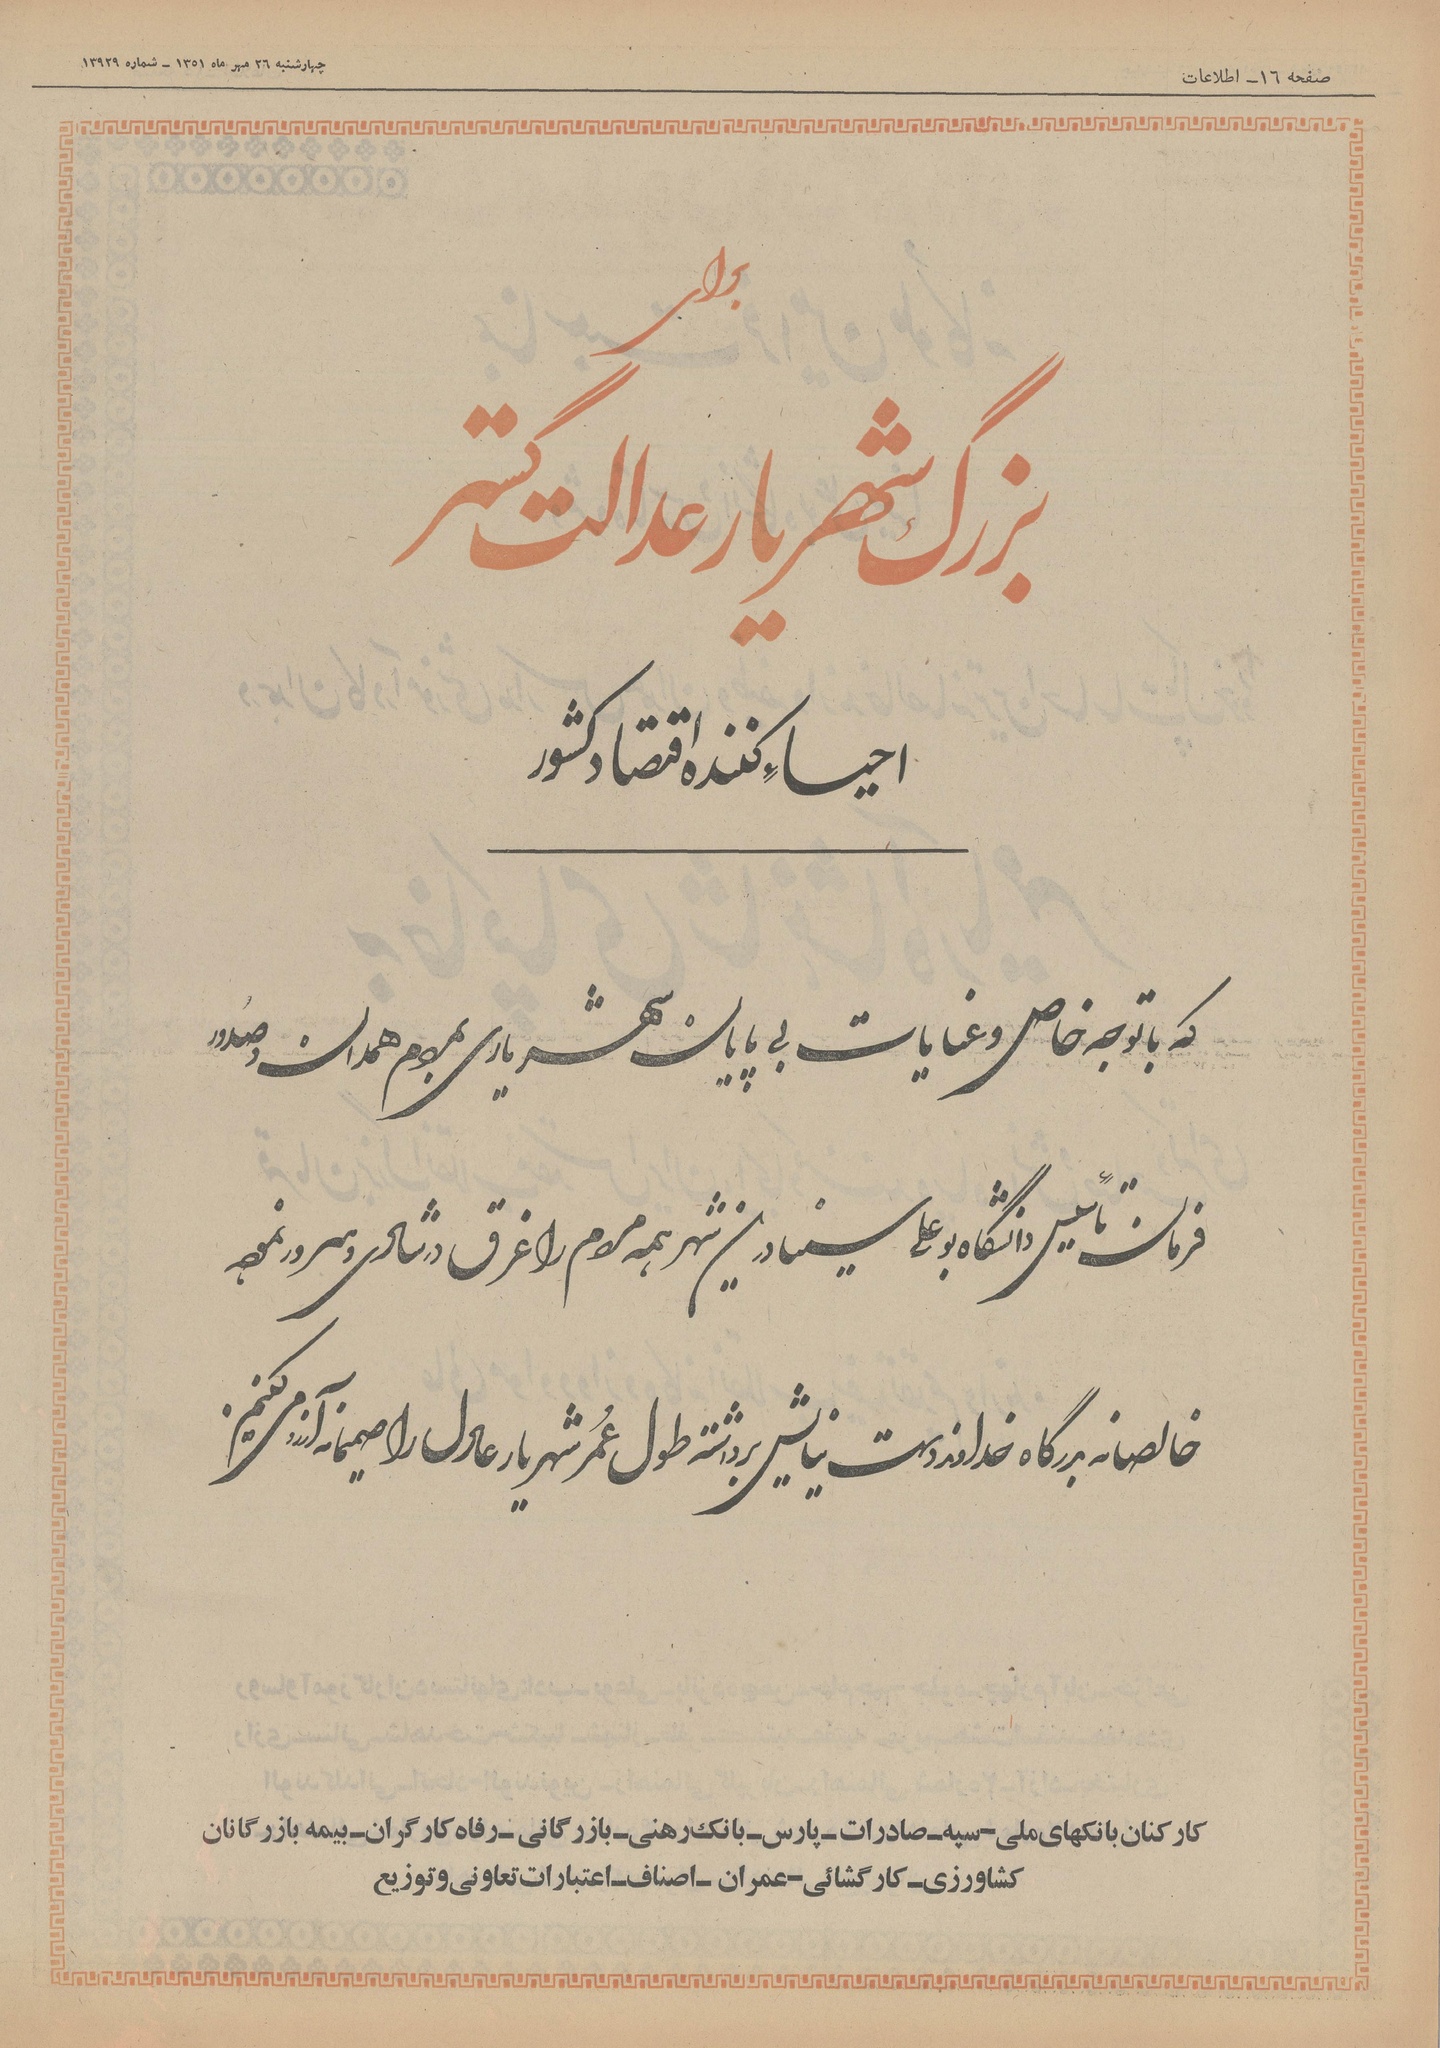 صفحه ١٦ـ اطلاعات
چهارشنبه ٢٦ مهر ماه ١٣٥١ ـ شماره ١٣٩٢٩
برای
بزرگ شهریار عدالت گستر
احیاء کننده اقتصاد کشور
که با توجه خاص و عنایات بی پایان شهریاری بمردم همدان و صدور
فرمان تأسیس دانشگاه بوعلی سینا در این شهر همه مردم را غرق در شادی و سرور نموده
خالصانه بدرگاه خداوند دست نیایش برداشته طول عُمر شهریار عادل را صمیمانه آرزو می کنیم.
کارکنان بانکهای ملی-سپه-صادرات-پارس-بانک رهنی-بازرگانی-رفاه کارگران-بیمه بازرگانان
کشاورزی-کارگشائی-عمران-اصناف-اعتبارات تعاونی و توزیع